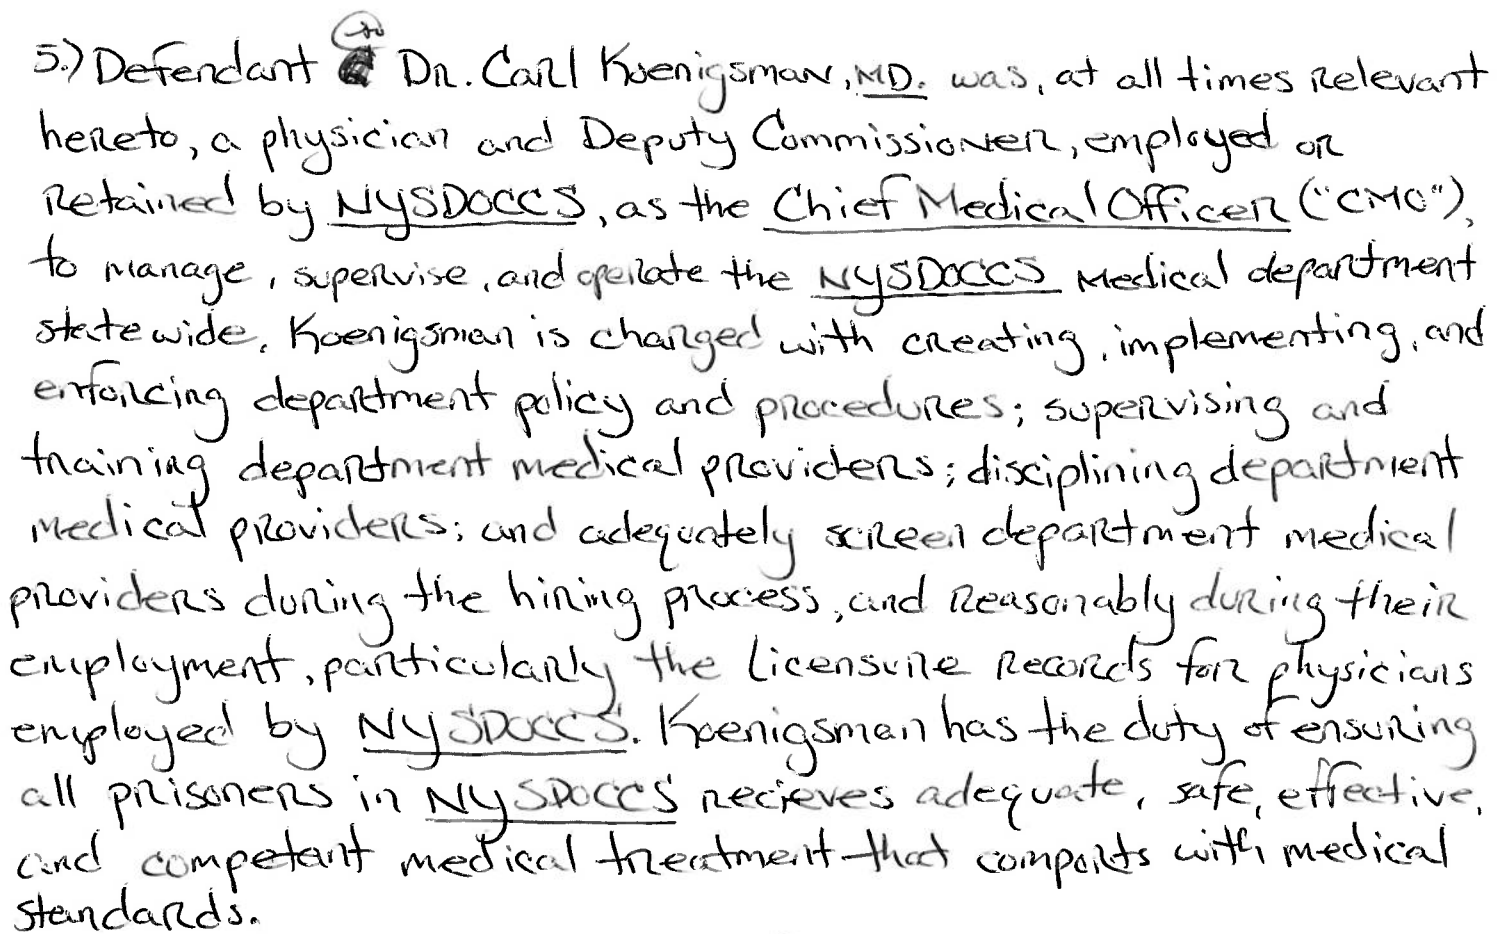 5.) Defendant Dr. Carl Koenigsman, MD. was, at all times relevant
hereto, a physician and Deputy Commissioner, employed or
retained by NYSDOCCS, as the Chief Medical Officer ("CMO"),
to manage, supervise, and operate the NYSDOCCS medical department
statewide. Koenigsman is charged with creating, implementing, and
enforcing department policy and procedures; supervising and
training department medical providers; disciplining department
medical providers; and adequately screen department medical
providers during the hiring process, and reasonably during their
employment, particularly the licensure records for physicians
employed by NYSDOCCS. Koenigsman has the duty of ensuring
all prisoners in NYSDOCCS recieves adequate, safe, effective,
and competent medical treatment that comports with medical
standards.